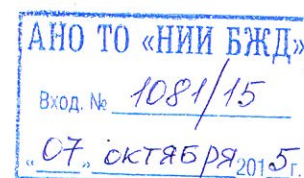 АНО ТО «НИИ БЖД»
Вход. № 1081/15
"07" октября 2015 г.